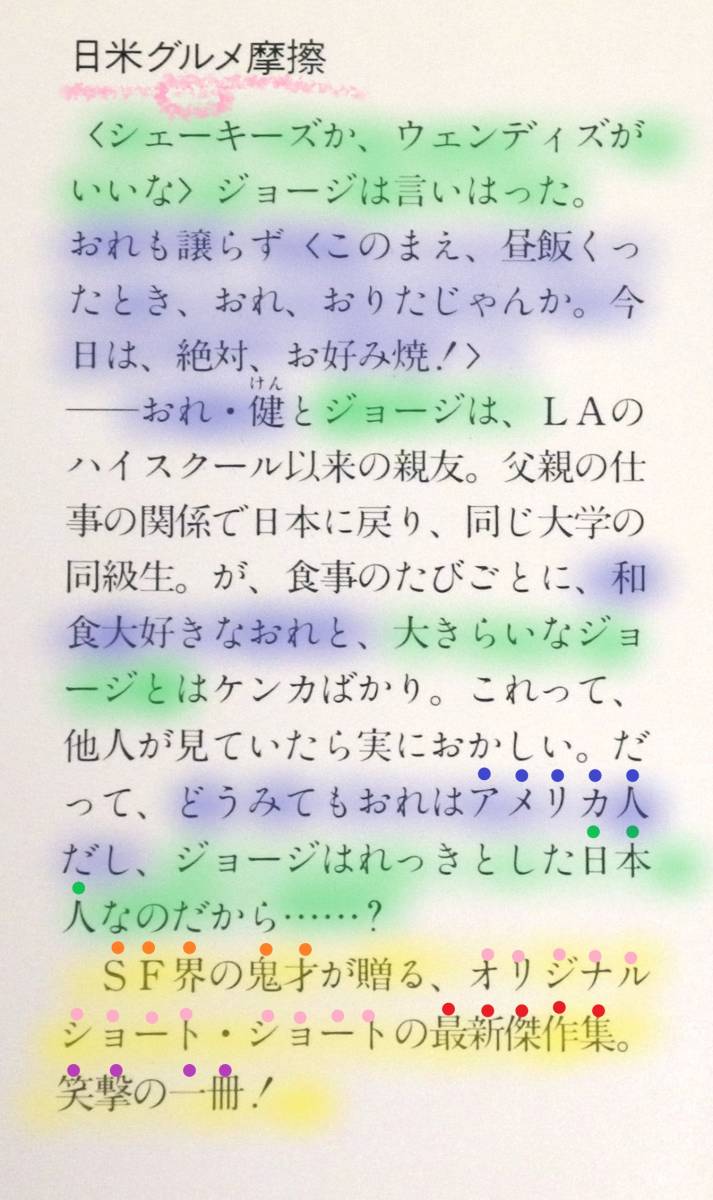 日米グルメ摩擦
〈シェーキーズか、ウェンディズが
いいな〉ジョージは言いはった。
おれも譲らず〈このまえ、昼飯くっ
たとき、おれ、おりたじゃんか。今
日は、絶対、お好み焼！〉
けん
――おれ・健とジョージは、ＬＡの
ハイスクール以来の親友。父親の仕
事の関係で日本に戻り、同じ大学の
同級生。が、食事のたびごとに、和
食大好きなおれと、大きらいなジョ
ージとはケンカばかり。これって、
他人が見ていたら実におかしい。だ
って、どうみてもおれはアメリカ人
だし、ジョージはれっきとした日本
人なのだから……？
ＳＦ界の鬼才が贈る、オリジナル
ショート・ショートの最新傑作集。
笑撃の一冊！